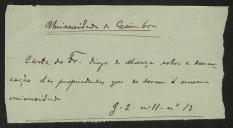 Universidade de Coimbra
Carta de Fr. Diogo de Murça sobre a demar-
cação das propriedades que se deram á mesma
universidade
g. 2. m. 11. nº 13